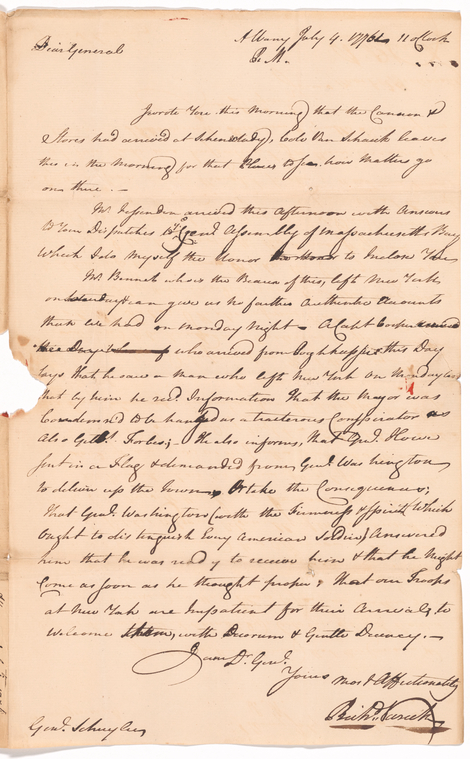 Dear General
Albany July 4. 1776 11 oClock
P. M.
I wrote You this Morning that the Cannon &
Stores had arrived at Schenectady, Colo Van Schaick leaves
this in the Morning for that Place to see how Matters go
on there. —
Mr. arrived this Afternoon with Answers
to Your Dispatches to Genl Assembly of Massachusetts Bay
Which I do Myself the Honor to Inclose You
Mr. Bennet who is the Bearer of this, left New York
on can give us no farther Authentic Accounts
than we had on Monday Night — A Capt Cooper
who arrived from Poghkeepsie this Day
says that he saw a Man who left New York on Monday last
that by him he recd. Information that the Mayor was
Condemn'd to be hanged as a traiterous Conspirator as
Also Gilbt. Forbes; — He also informs, that Genl. Howe
sent in a Flag & demanded from Genl. Washington
to deliver up the Town, Or take the Consequences;
that Genl. Washington (with the Firmness & Spirit Which
Ought to distinguish Every American Soldier) Answered
him that he was ready to receive him & that he Might
Come as soon as he thought proper & that our Troops
at New York are Impatient for their Arrival, to
Welcome them, with Decorum & Gentle Decency. —
I am Dr. Genl.
Yours most Affectionately
Richd. Varick
Genl. Schuyler